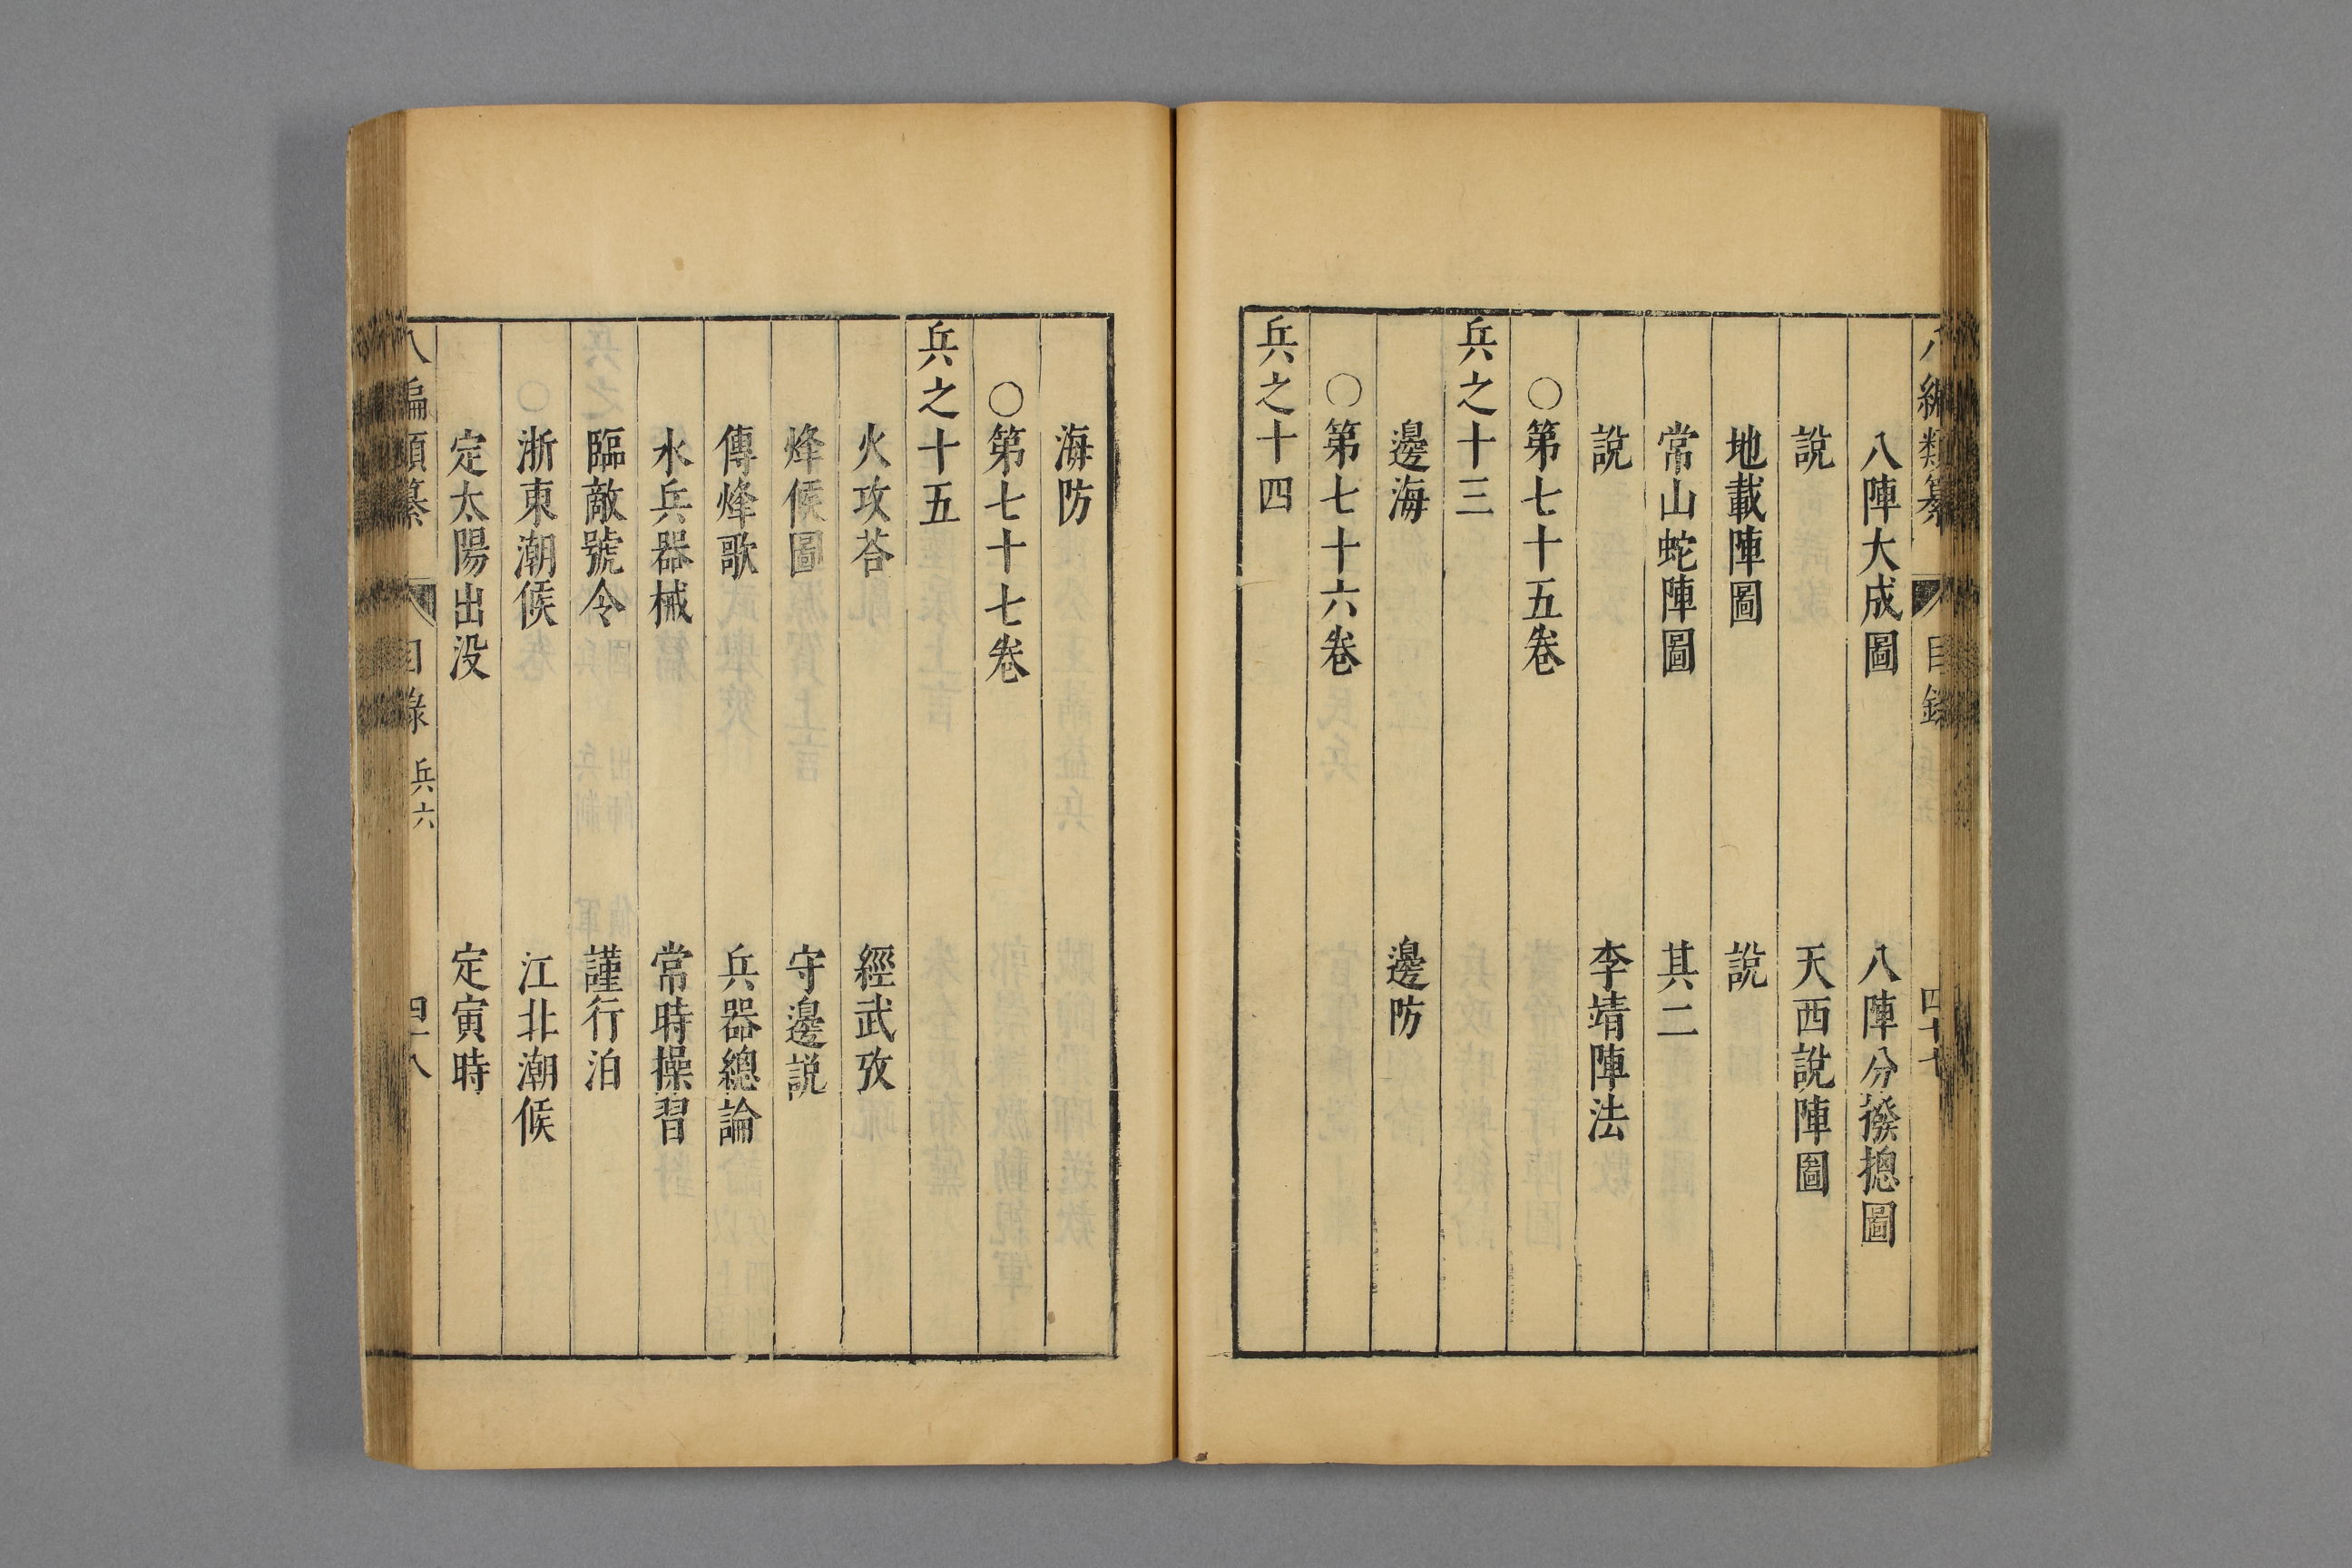 八編類纂 目錄 四十七
八陣大成圖 八陣分撥摠圖
說 天西說陣圖
地載陣圖 說
常山蛇陣圖 其二
說 李靖陣法
○第七十五卷
兵之十三
邊海 邊防
○第七十六卷
兵之十四
海防
○第七十七卷
兵之十五
火攻荅 經武攷
烽候圖 守邊説
傳烽歌 兵器總論
水兵器械 常時操習
臨敵號令 謹行泊
浙東潮候 江北潮候
定太陽出没 定寅時
八編類纂 目錄 兵六 四十八